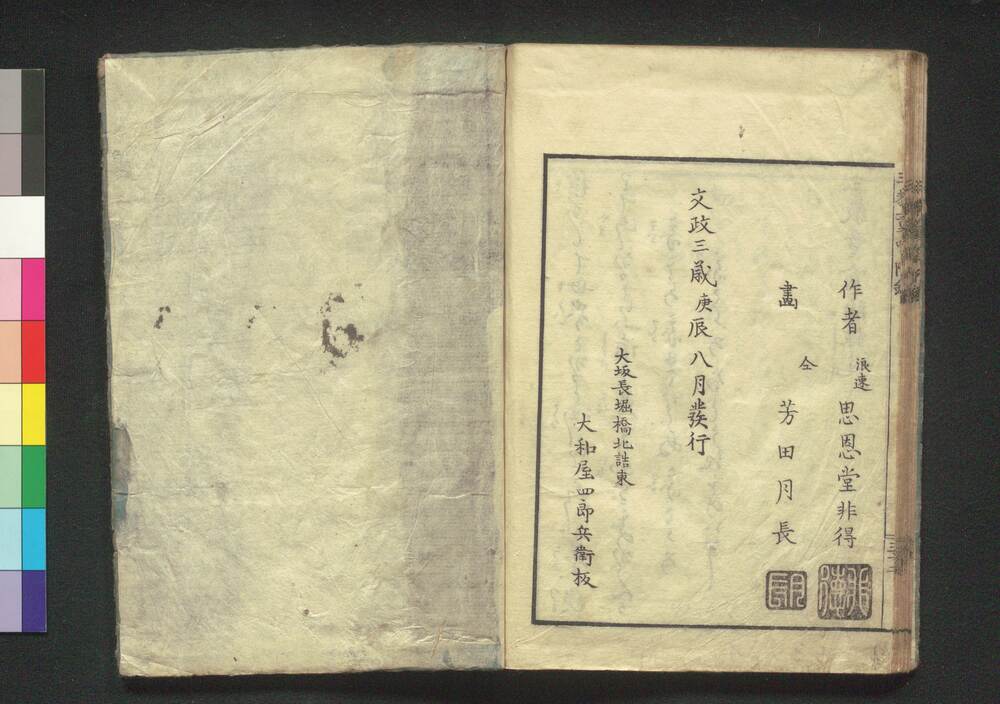 作者 浪速 思恩堂非得
畫 仝 芳田月長
文政三歳庚辰八月發行
大坂長堀橋北詰東
大和屋四郎兵衛板
非得
月長